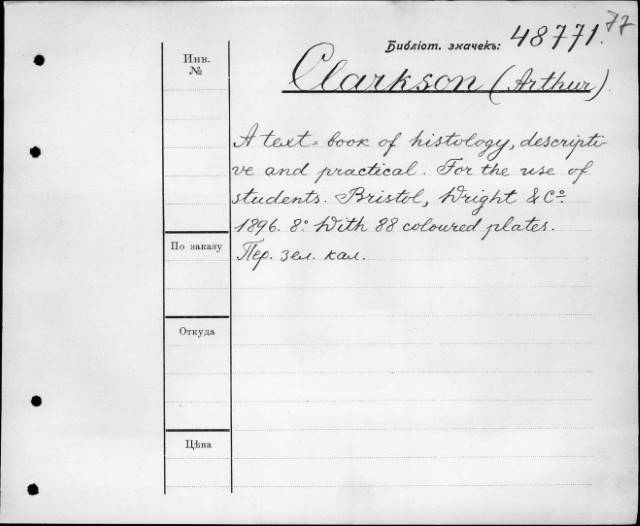 77
Библіот. значекъ: 48771.
Инв.
№
Clarkson (Arthur)
A text-book of histology, descripti-
ve and practical. For the use of
students. Bristol, Wright & Cº.
1896. 8º. With 88 coloured plates.
По заказу
Пер. зел. кал.
Откуда
Цѣна